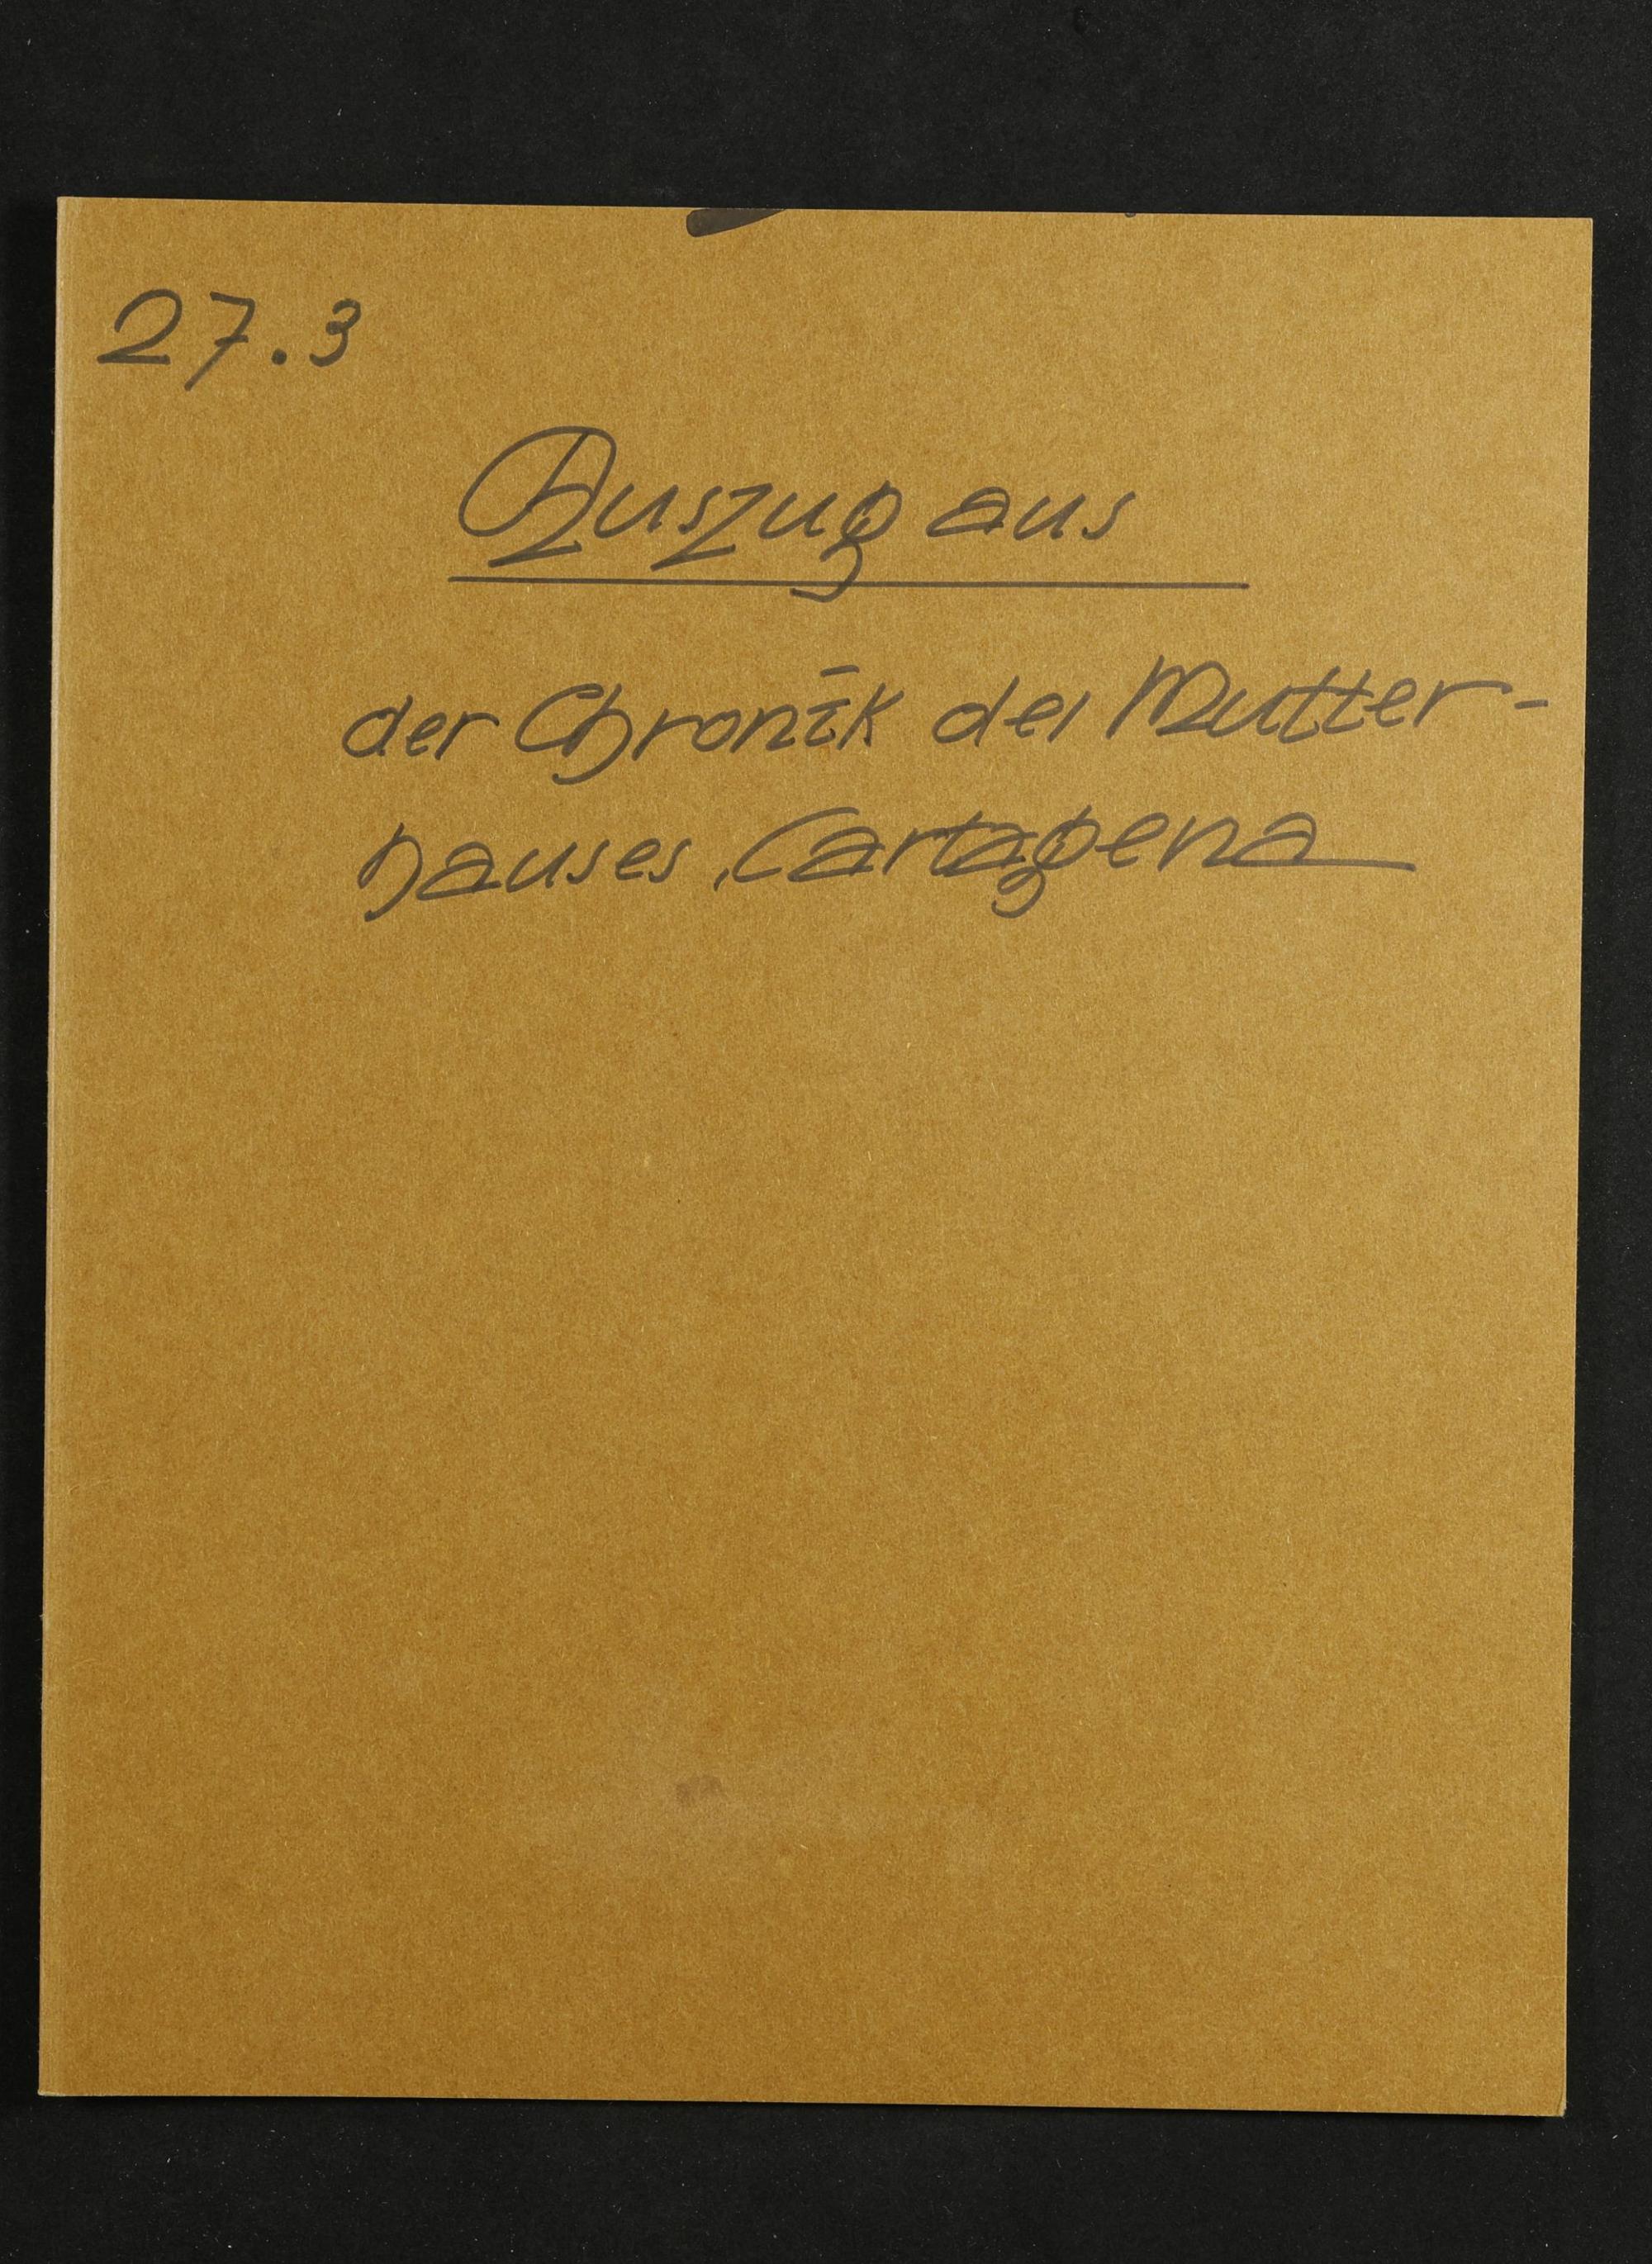 27.3
Auszug aus
der Chronik des Mutter-
hauses, Cartagena